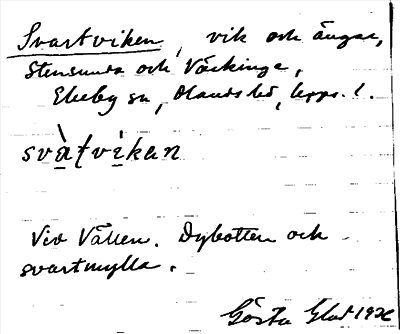 Svartviken, vik och ängar,
Stensunda och Väckinge,
Ekeby sn, Olands hd, Upps. l.
svàtvikan
Vid Vällen. Dybotten och
svartmylla.
Gösta